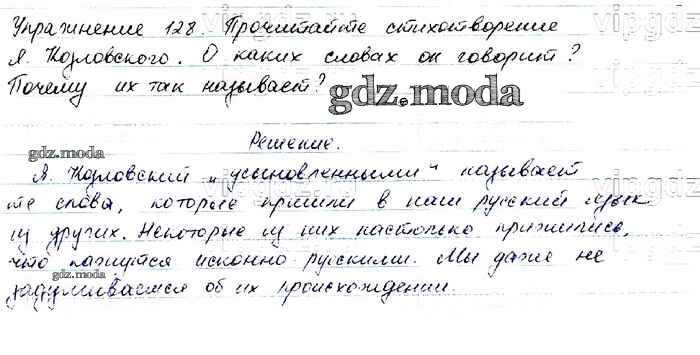 Упражнение 128. Прочитайте стихотворение
Я. Козловского. О каких словах он говорит?
Почему их так называет?
gdz.moda
Решение.
gdz.moda
Я. Козловский „усыновленными" называет
те слова, которые пришли в наш русский язык
из других. Некоторые из них настолько прижились,
что кажутся исконно русскими. Мы даже не
gdz.moda
задумываемся об их происхождении.